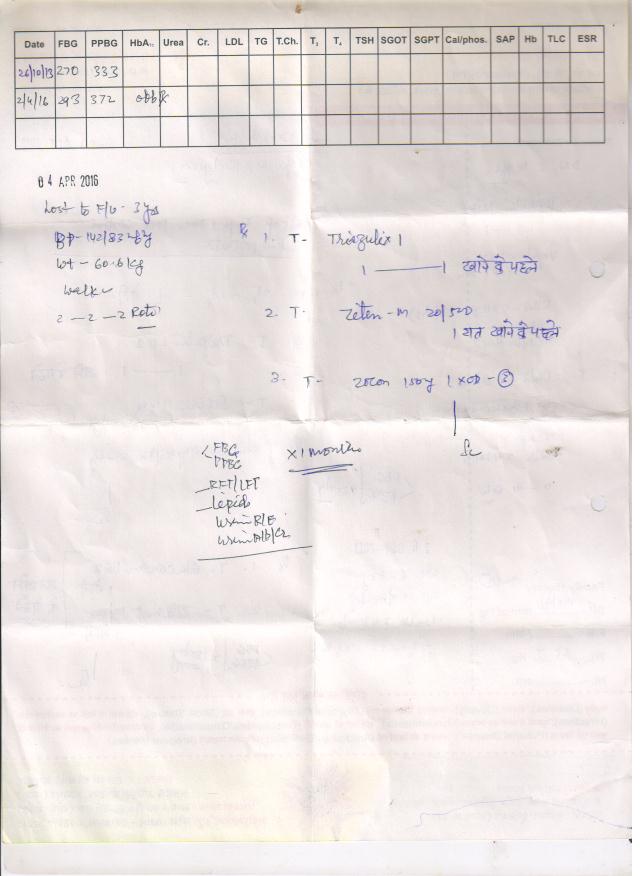 Date FBG PPBG HbA₁c Urea Cr. LDL TG T.Ch. T₃ T₄ TSH SGOT SGPT Cal/phos. SAP Hb TLC ESR
26/10/13 270 333
2/4/16 293 372
04 APR 2016
Lost to F/U - 3 yrs
BP - 142/83
Wt - 60.6 kg
Walk
2 — 2 — 2 Roti
Rx 1. T-
1 ——— 1 खाने से पहले
2. T. 20/500
1 रात खाने से पहले
3. T- 1 x OD -
FBG
PPBG
x 1 month
RFT/LFT
Lipids
Urine R/E
Urine Alb/Cr